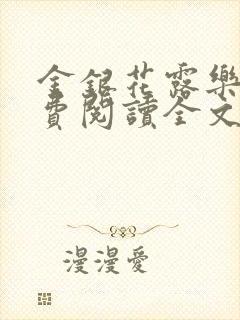 金銀花露樂
費閱讀全文
漫漫愛